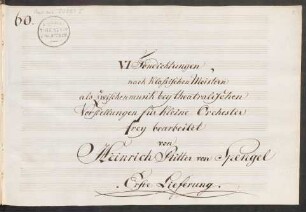 60.
VI Tondichtungen
nach Klassischen Meistern
als Zwischenmusik bey theatralischen
Vorstellungen für kleine Orchester
frey bearbeitet
von
Heinrich Ritter von Spengel
Erste Lieferung.